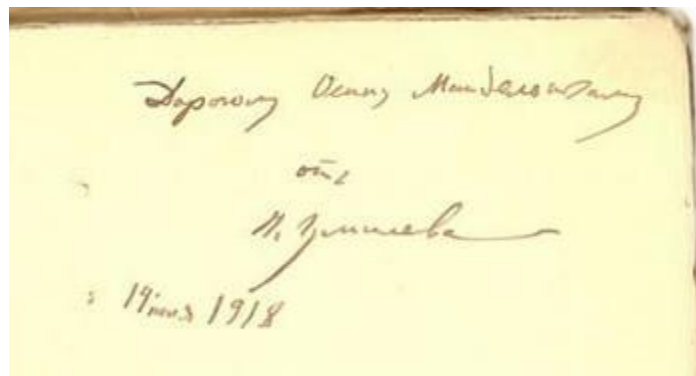 Дорогому Осипу Мандельштаму
отъ
Н. Гумилева
19 июля 1918